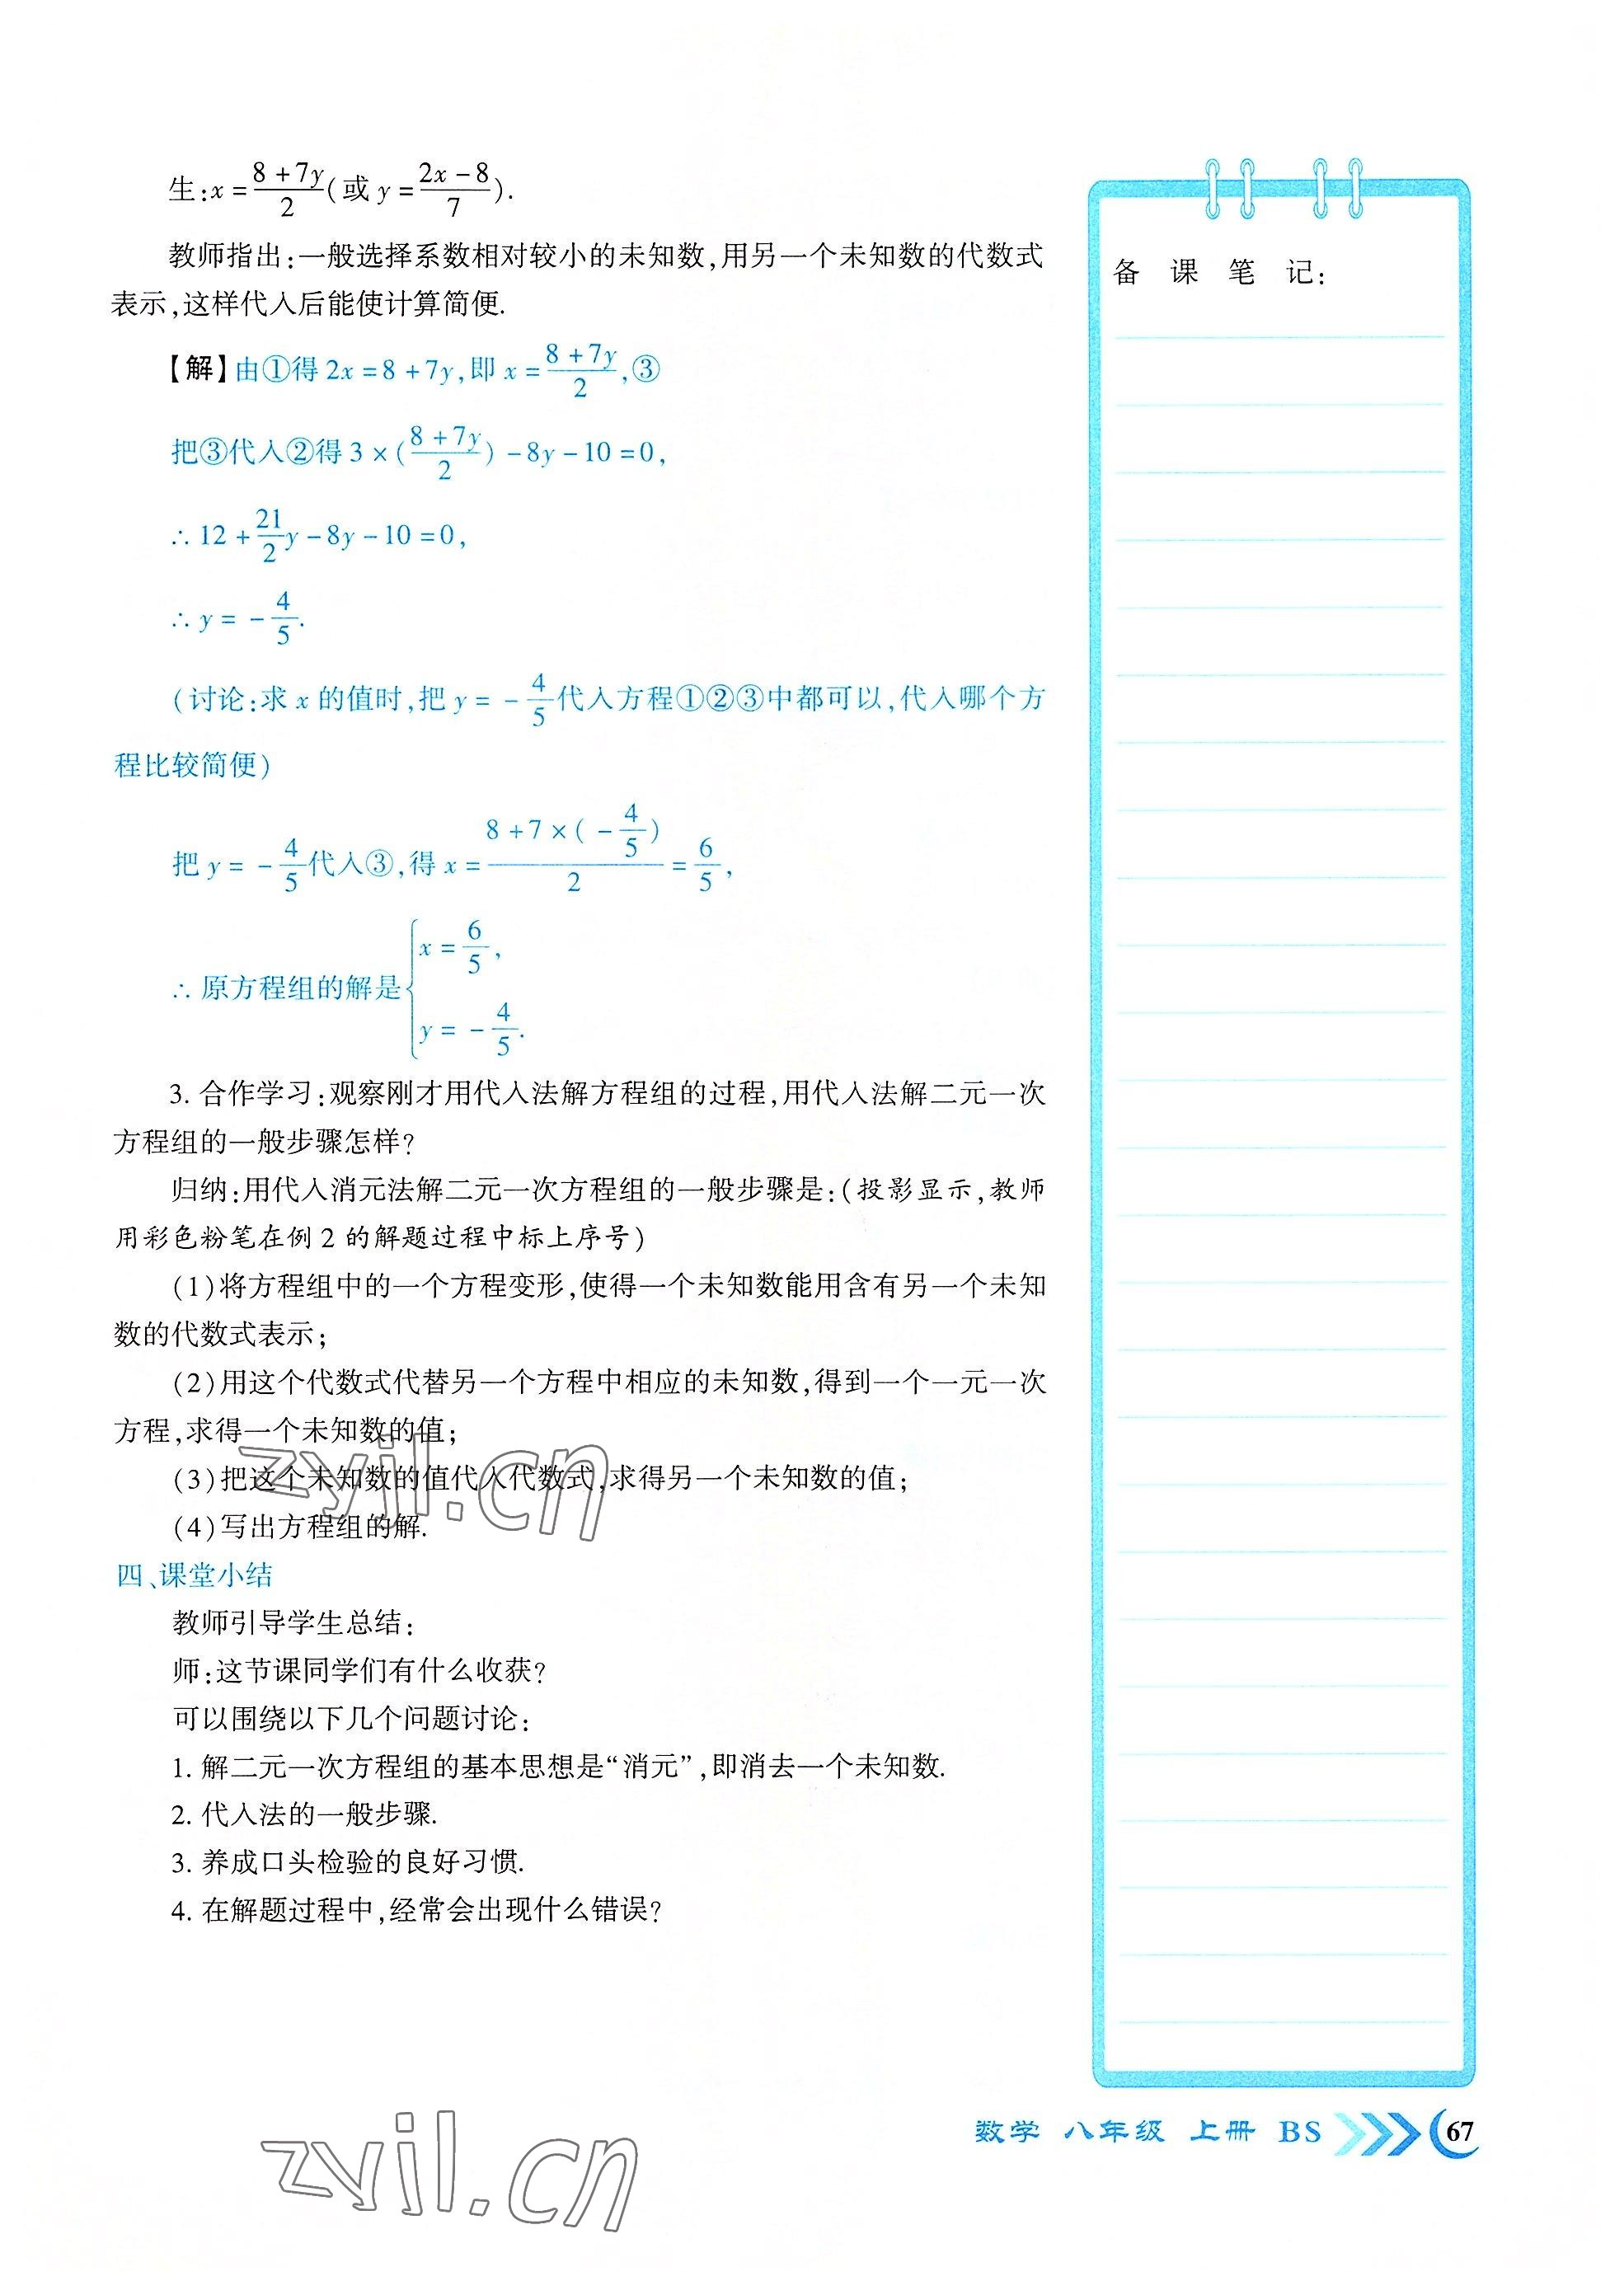 生:x=\frac{8+7y}{2}(或 y=\frac{2x-8}{7}).
教师指出:一般选择系数相对较小的未知数,用另一个未知数的代数式
表示,这样代入后能使计算简便.
【解】由①得 2x=8+7y,即 x=\frac{8+7y}{2},③
把③代入②得 3×(\frac{8+7y}{2})-8y-10=0,
∴12+\frac{21}{2}y-8y-10=0,
∴y=-\frac{4}{5}.
(讨论:求 x 的值时,把 y=-\frac{4}{5}代入方程①②③中都可以,代入哪个方
程比较简便)
把 y=-\frac{4}{5}代入③,得 x=\frac{8+7×(-\frac{4}{5})}{2}=\frac{6}{5},
∴原方程组的解是{x=\frac{6}{5},
y=-\frac{4}{5}.
3. 合作学习:观察刚才用代入法解方程组的过程,用代入法解二元一次
方程组的一般步骤怎样?
归纳:用代入消元法解二元一次方程组的一般步骤是:(投影显示,教师
用彩色粉笔在例 2 的解题过程中标上序号)
(1)将方程组中的一个方程变形,使得一个未知数能用含有另一个未知
数的代数式表示;
(2)用这个代数式代替另一个方程中相应的未知数,得到一个一元一次
方程,求得一个未知数的值;
(3)把这个未知数的值代入代数式,求得另一个未知数的值;
(4)写出方程组的解.
四、课堂小结
教师引导学生总结:
师:这节课同学们有什么收获?
可以围绕以下几个问题讨论:
1. 解二元一次方程组的基本思想是“消元”,即消去一个未知数.
2. 代入法的一般步骤.
3. 养成口头检验的良好习惯.
4. 在解题过程中,经常会出现什么错误?
备 课 笔 记:
zyjl.cn
zyjl.cn
数学 八年级 上册 BS 67